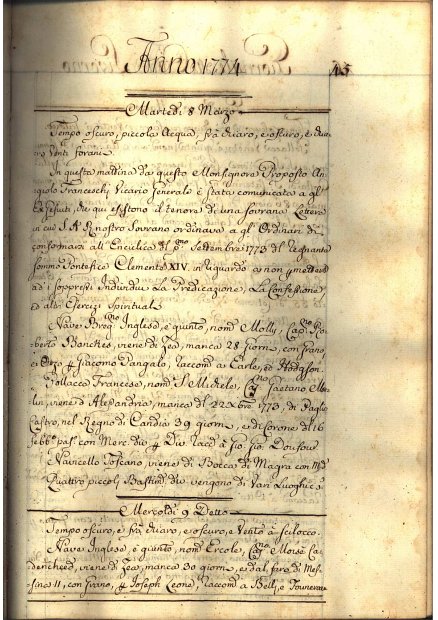 Anno 1774
45
Martedì 8 Marzo
Tempo oscuro, piccola Acqua, frà chiaro, e oscuro, e
Venti sorani
In questa mattina da questo Monsignore Proposto An
giolo Franceschi Vicario Generale è stata comunicata a gl'
che qui esistono il tenore di una sovrana Lettera
in cui S. A. R. nostro Sovrano ordinava a gl'Ordinari di
conformarsi all'Enciclica del Settembre 1773 del Regnante
sommo Pontefice Clemente XIV. in riguardo a non
ad'i soppressi Individui La Predicazione, La Confessione,
ed altri Esercizi Spirituali
Nave Inglese, è giunto, nom.ª Molly, Cap.no Ro
berto Benches, viene di Zea, manca 28 giorni, con Grano,
Giacomo Pangalo, Raccom. a Earle, ed Hodgson.
Pollacca Francese, nom.ª S. Michele, Cap.no Gaetano
lin, viene d'Alesandria, manca dal 22 Xbre 1773, di
Castro, nel Regno di Candia 39 giorni, e di Sorano di 16
con Merc. div. Div. Racc. a Gio. Gio. Doufour
Navicello Toscano, viene di Bocca di Magra con
Quattro piccoli Bastim. che vengono di Vari Luoghi
Mercoldì 9 Detto
Tempo oscuro, e frà chiaro, e oscuro, e Vento à Scilocco.
Nave Inglese, è giunto, nom.ª Ercole, Cap.no Moisè Ca
viene di Zea, manca 30 giorni, e dal faro di Mes
sina 11, con Grano, Joseph Leone, Raccom. a Bell, e